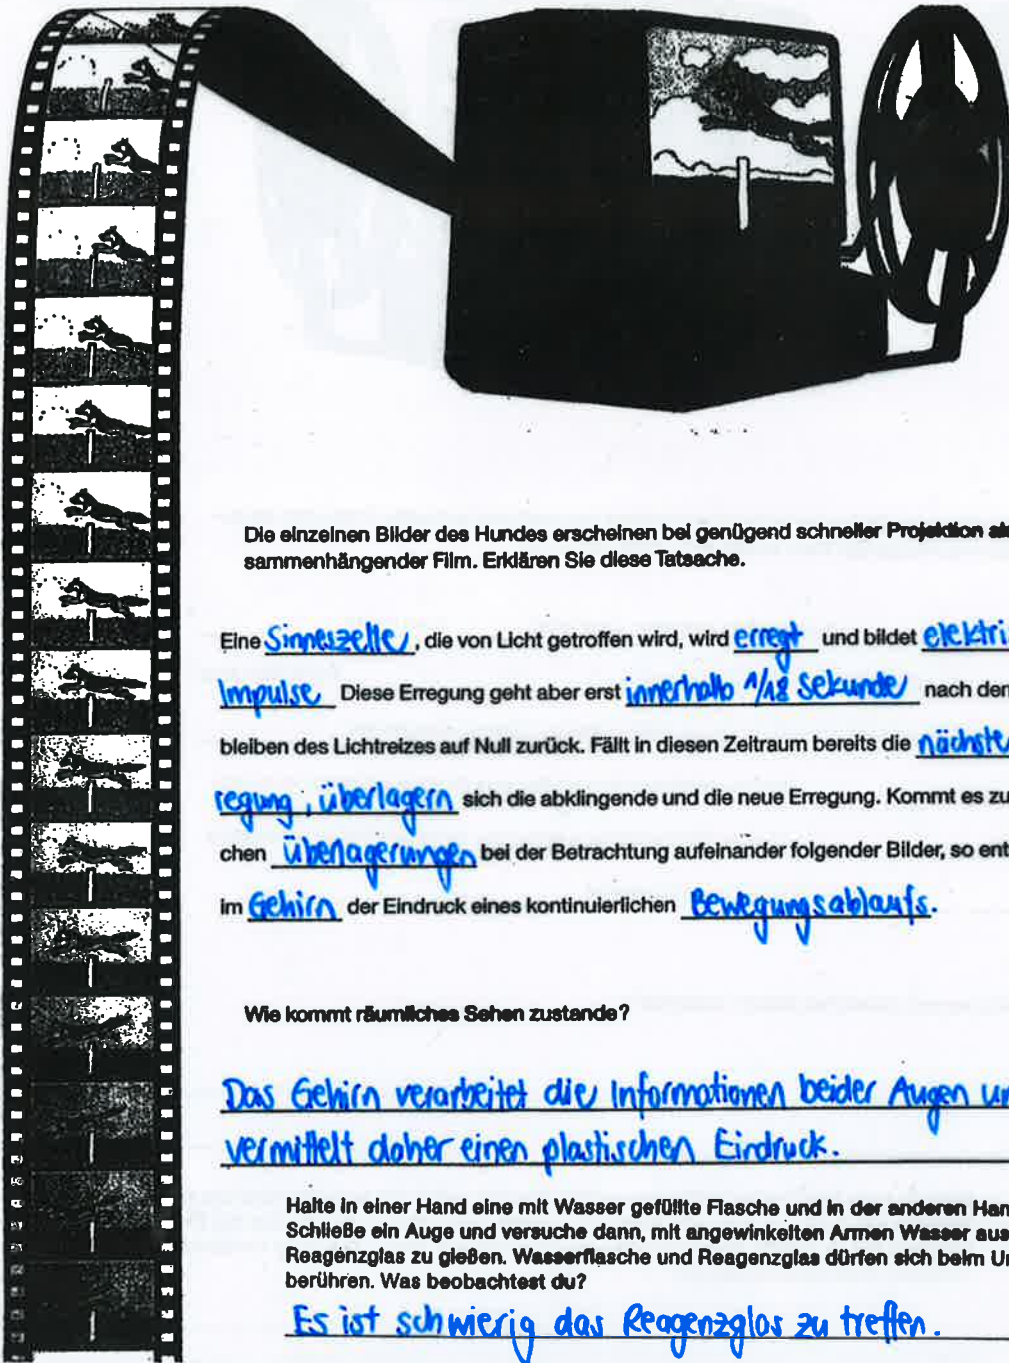 Die einzelnen Bilder des Hundes erscheinen bei genügend schneller Projektion al
sammenhängender Film. Erklären Sie diese Tatsache.
Eine Sinneszelle, die von Licht getroffen wird, wird erregt und bildet elektri
Impulse Diese Erregung geht aber erst innerhalb 1/18 Sekunde nach dem
bleiben des Lichtreizes auf Null zurück. Fällt in diesen Zeitraum bereits die nächste
regung, überlagern sich die abklingende und die neue Erregung. Kommt es zu
chen Überlagerungen bei der Betrachtung aufeinander folgender Bilder, so ent
im Gehirn der Eindruck eines kontinuierlichen Bewegungsablaufs.
Wie kommt räumliches Sehen zustande?
Das Gehirn verarbeitet die Informationen beider Augen un
vermittelt daher einen plastischen Eindruck.
Halte in einer Hand eine mit Wasser gefüllte Flasche und in der anderen Han
Schließe ein Auge und versuche dann, mit angewinkelten Armen Wasser aus
Reagenzglas zu gießen. Wasserflasche und Reagenzglas dürfen sich beim Um
berühren. Was beobachtest du?
Es ist schwierig das Reagenzglas zu treffen.